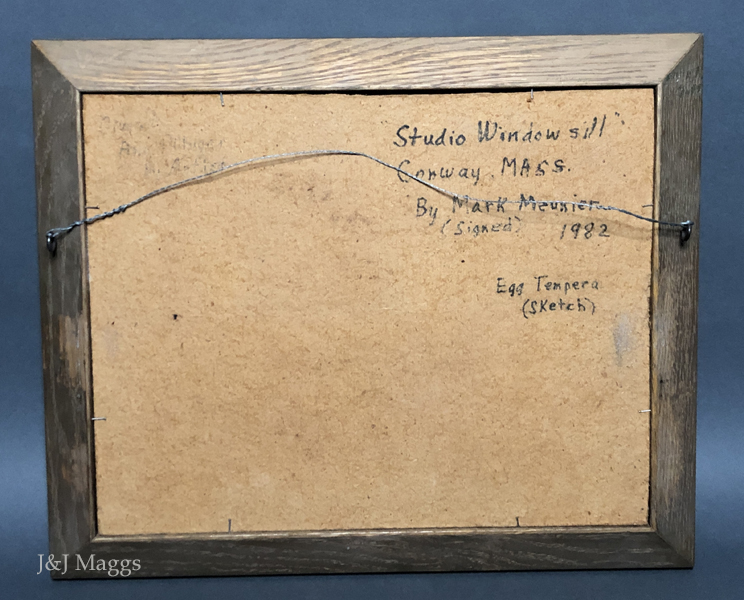 Studio Windowsill"
Conway, MASS.
By Mark Meunier
(Signed) 1982
Egg Tempera
(SKetch)
J&J Maggs